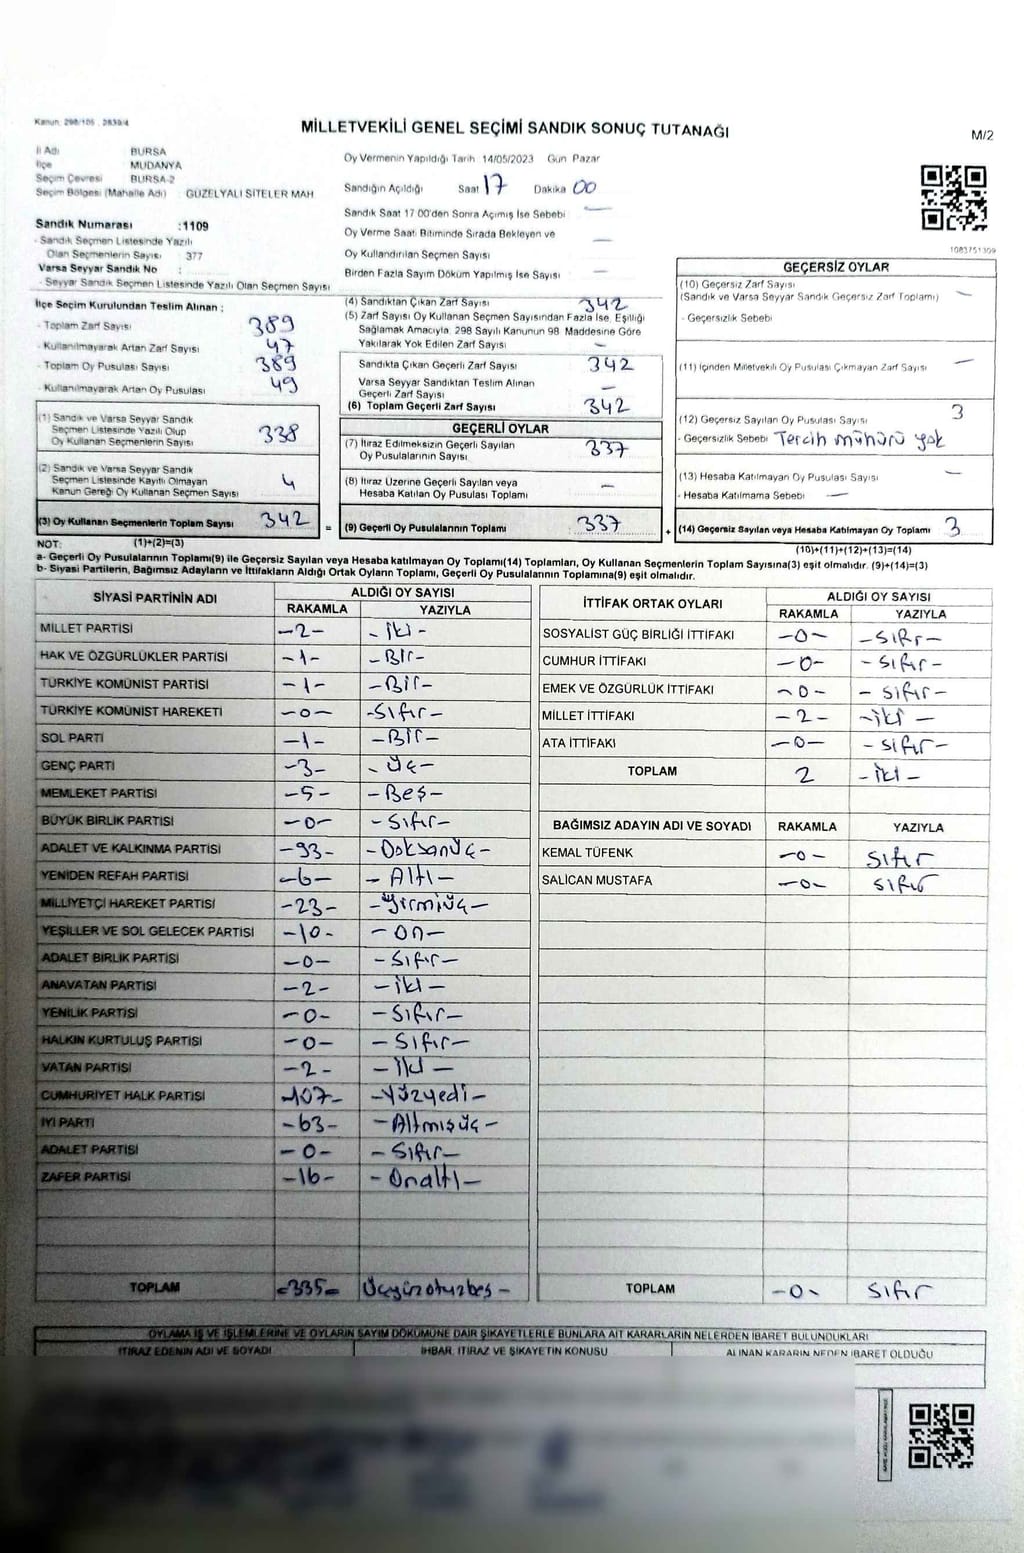 Kanun: 298/105 : 2839/4
MİLLETVEKİLİ GENEL SEÇİMİ SANDIK SONUÇ TUTANAĞI
M/2
İl Adı BURSA
İlçe MUDANYA
Seçim Çevresi BURSA-2
Seçim Bölgesi (Mahalle Adı) : GÜZELYALI SİTELER MAH
Oy Vermenin Yapıldığı Tarih 14/05/2023 Gün Pazar
Sandığın Açıldığı Saat 17 Dakika 00
Sandık Saat 17 00'den Sonra Açımış İse Sebebi —
Oy Verme Saat Bitiminde Sırada Bekleyen ve
Oy Kullandırılan Seçmen Sayısı —
Birden Fazla Sayım Döküm Yapılmış İse Sayısı —
1083751309
Sandık Numarası :1109
- Sandık Seçmen Listesinde Yazılı
Olan Seçmenlerin Sayısı : 377
Varsa Seyyar Sandık No :
- Seyyar Sandık Seçmen Listesinde Yazılı Olan Seçmen Sayısı
İlçe Seçim Kurulundan Teslim Alınan :
- Toplam Zarf Sayısı 389
- Kullanılmayarak Artan Zarf Sayısı 47
- Toplam Oy Pusulası Sayısı 389
- Kullanılmayarak Artan Oy Pusulası 49
(1) Sandık ve Varsa Seyyar Sandık
Seçmen Listesinde Yazılı Olup
Oy Kullanan Seçmenlerin Sayısı 338
(2) Sandık ve Varsa Seyyar Sandık
Seçmen Listesinde Kayıtlı Olmayan
Kanun Gereği Oy Kullanan Seçmen Sayısı 4
(3) Oy Kullanan Seçmenlerin Toplam Sayısı 342
(1)+(2)=(3)
(4) Sandıktan Çıkan Zarf Sayısı 342
(5) Zarf Sayısı Oy Kullanan Seçmen Sayısından Fazla İse, Eşitliği
Sağlamak Amacıyla, 298 Sayılı Kanunun 98. Maddesine Göre
Yakılarak Yok Edilen Zarf Sayısı —
Sandıkta Çıkan Geçerli Zarf Sayısı 342
Varsa Seyyar Sandıktan Teslim Alınan
Geçerli Zarf Sayısı —
(6) Toplam Geçerli Zarf Sayısı 342
GEÇERLİ OYLAR
(7) İtiraz Edilmeksizin Geçerli Sayılan
Oy Pusulalarının Sayısı 337
(8) İtiraz Üzerine Geçerli Sayılan veya
Hesaba Katılan Oy Pusulası Toplamı —
= (9) Geçerli Oy Pusulalarının Toplamı 337 +
GEÇERSİZ OYLAR
(10) Geçersiz Zarf Sayısı
(Sandık ve Varsa Seyyar Sandık Geçersiz Zarf Toplamı) —
- Geçersizlik Sebebi
(11) İçinden Milletvekili Oy Pusulası Çıkmayan Zarf Sayısı —
(12) Geçersiz Sayılan Oy Pusulası Sayısı 3
- Geçersizlik Sebebi Tercih mühürü yok
(13) Hesaba Katılmayan Oy Pusulası Sayısı —
- Hesaba Katılmama Sebebi —
(14) Geçersiz Sayılan veya Hesaba Katılmayan Oy Toplamı 3
(10)+(11)+(12)+(13)=(14)
NOT:
a- Geçerli Oy Pusulalarının Toplamı(9) ile Geçersiz Sayılan veya Hesaba katılmayan Oy Toplamı(14) Toplamları, Oy Kullanan Seçmenlerin Toplam Sayısına(3) eşit olmalıdır. (9)+(14)=(3)
b- Siyasi Partilerin, Bağımsız Adayların ve İttifakların Aldığı Ortak Oyların Toplamı, Geçerli Oy Pusulalarının Toplamına(9) eşit olmalıdır.
SİYASİ PARTİNİN ADI ALDIĞI OY SAYISI
RAKAMLA YAZIYLA
MİLLET PARTİSİ -2- -iki-
HAK VE ÖZGÜRLÜKLER PARTİSİ -1- -Bir-
TÜRKİYE KOMÜNİST PARTİSİ -1- -Bir-
TÜRKİYE KOMÜNİST HAREKETİ -0- -Sıfır-
SOL PARTİ -1- -Bir-
GENÇ PARTİ -3- -Üç-
MEMLEKET PARTİSİ -5- -Beş-
BÜYÜK BİRLİK PARTİSİ -0- -Sıfır-
ADALET VE KALKINMA PARTİSİ -93- -Doksanüç-
YENİDEN REFAH PARTİSİ -6- -Altı-
MİLLİYETÇİ HAREKET PARTİSİ -23- -Yirmiüç-
YEŞİLLER VE SOL GELECEK PARTİSİ -10- -On-
ADALET BİRLİK PARTİSİ -0- -Sıfır-
ANAVATAN PARTİSİ -2- -iki-
YENİLİK PARTİSİ -0- -Sıfır-
HALKIN KURTULUŞ PARTİSİ -0- -Sıfır-
VATAN PARTİSİ -2- -iki-
CUMHURİYET HALK PARTİSİ -107- -Yüzyedi-
İYİ PARTİ -63- -Altmışüç-
ADALET PARTİSİ -0- -Sıfır-
ZAFER PARTİSİ -16- -Onaltı-
TOPLAM -335- Üçyüzotuzbeş-
İTTİFAK ORTAK OYLARI ALDIĞI OY SAYISI
RAKAMLA YAZIYLA
SOSYALİST GÜÇ BİRLİĞİ İTTİFAKI -0- -Sıfır-
CUMHUR İTTİFAKI -0- -Sıfır-
EMEK VE ÖZGÜRLÜK İTTİFAKI -0- -Sıfır-
MİLLET İTTİFAKI -2- -iki-
ATA İTTİFAKI -0- -Sıfır-
TOPLAM 2 -iki-
BAĞIMSIZ ADAYIN ADI VE SOYADI RAKAMLA YAZIYLA
KEMAL TÜFENK -0- Sıfır
SALİCAN MUSTAFA -0- Sıfır
TOPLAM -0- Sıfır
OYLAMA İŞ VE İŞLEMLERİNE VE OYLARIN SAYIM DÖKÜMÜNE DAİR ŞİKAYETLERLE BUNLARA AİT KARARLARIN NELERDEN İBARET BULUNDUKLARI
İTİRAZ EDENİN ADI VE SOYADI İHBAR, İTİRAZ VE ŞİKAYETİN KONUSU ALINAN KARARIN NEDEN İBARET OLDUĞU